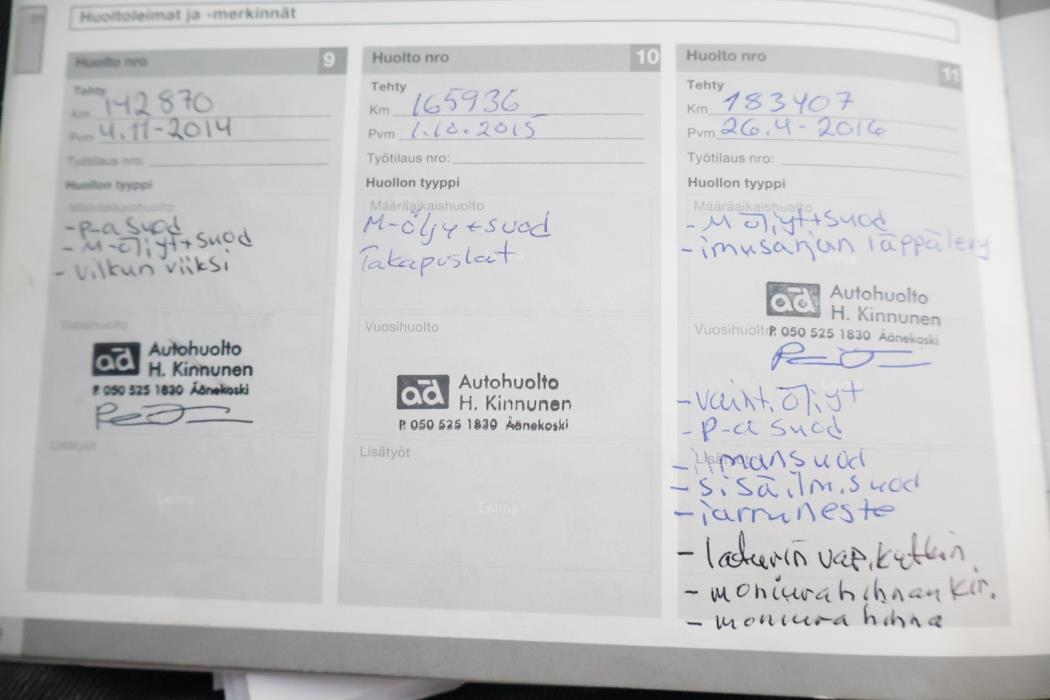 Huoltoleimat ja -merkinnät
Huolto nro 9
Tehty
Km 142870
Pvm 4.11-2014
Työtilaus nro:
Huollon tyyppi
Määräaikaishuolto
-p-a suod
- M-öljyt+suod
- vilkun viiksi
Vuosihuolto
ad Autohuolto
H. Kinnunen
P. 050 525 1830 Äänekoski
Lisätyöt
Leima
Huolto nro 10
Tehty
Km 165936
Pvm 1.10.2015
Työtilaus nro:
Huollon tyyppi
Määräaikaishuolto
M-öljy+suod
Takapuslat
Vuosihuolto
ad Autohuolto
H. Kinnunen
P. 050 525 1830 Äänekoski
Lisätyöt
Leima
Huolto nro 11
Tehty
Km 183407
Pvm 26.4-2016
Työtilaus nro:
Huollon tyyppi
Määräaikaishuolto
- M öljyt+suod
- imusarjan läppälevy
ad Autohuolto
H. Kinnunen
Vuosihuolto P. 050 525 1830 Äänekoski
- vaiht.öljyt
- p-a suod
Lisätyöt
- ilmansuod
- sisä.ilm.suod
- jarruneste
- laturin vap.kytkin
- moniurahihnan kir.
- moniurahihna